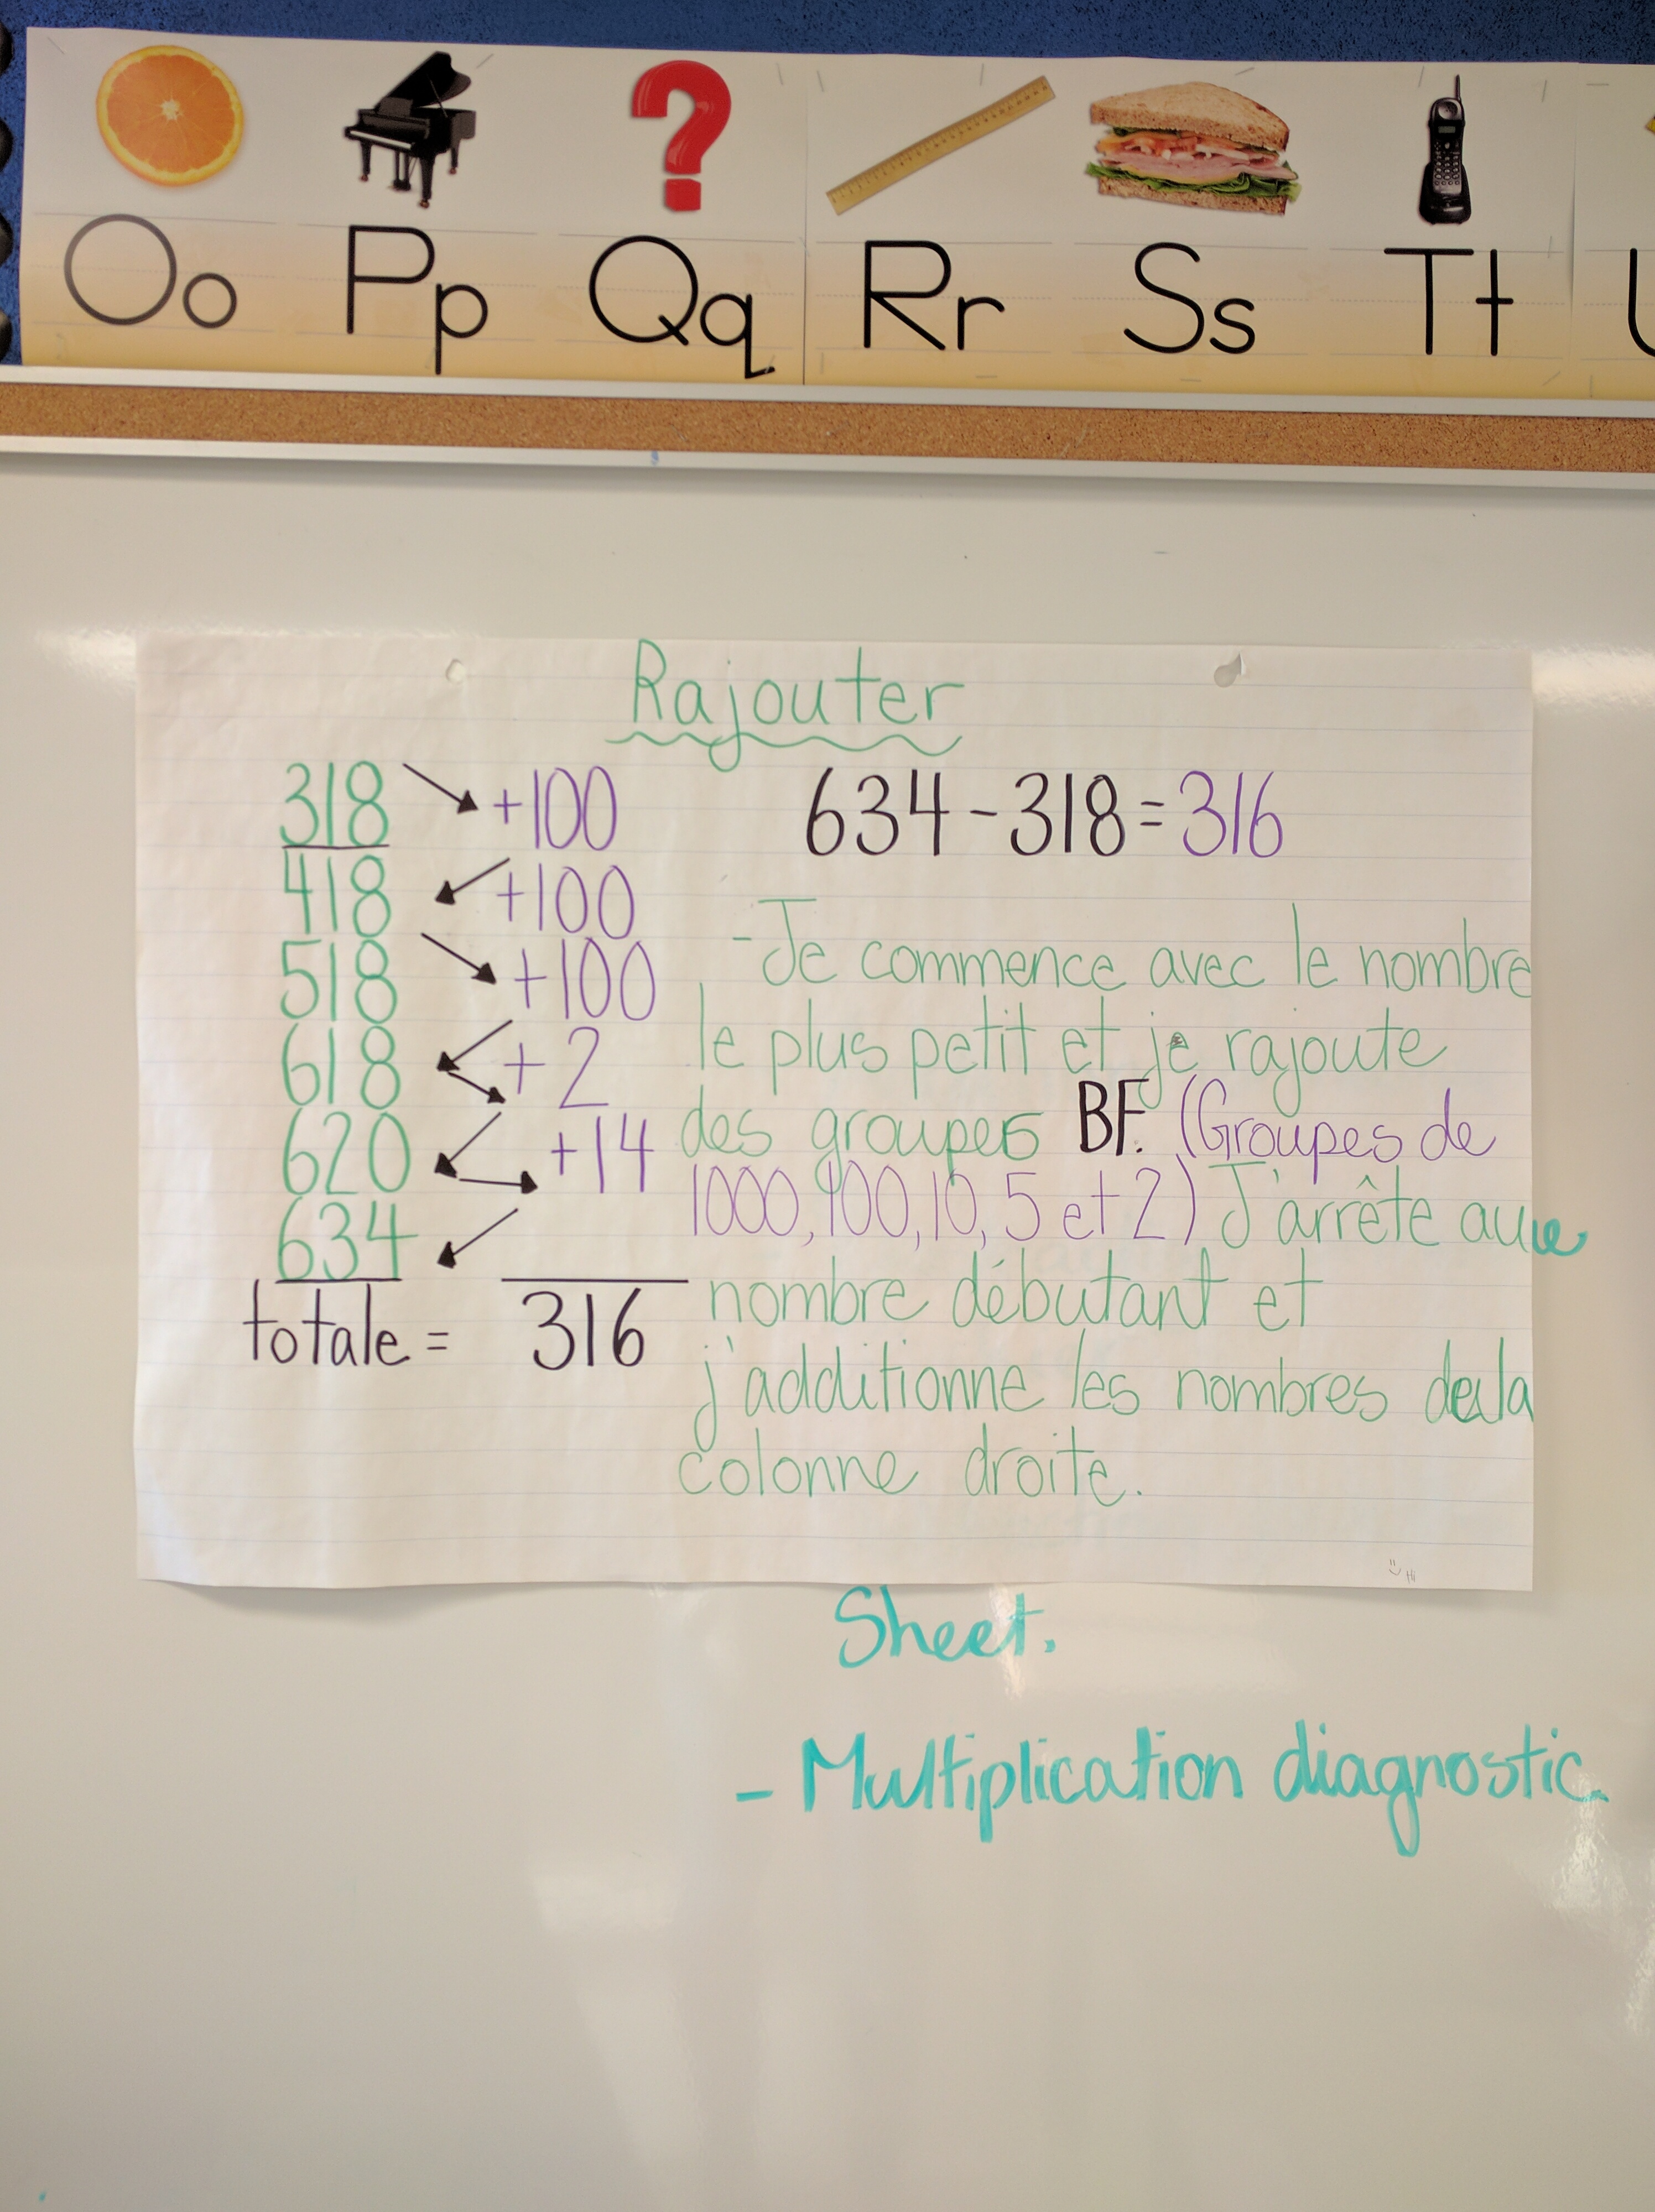 Oo Pp Qq Rr Ss Tt U
Rajouter
318 +100
418 +100
518 +100
618 +2
620 +14
634
totale = 316
634-318=316
-Je commence avec le nombre
le plus petit et je rajoute
des groupes BF. (Groupes de
1000, 100, 10, 5 et 2) J'arrête au
nombre débutant et
j'additionne les nombres de la
colonne droite.
Hi
Sheet.
- Multiplication diagnostic.